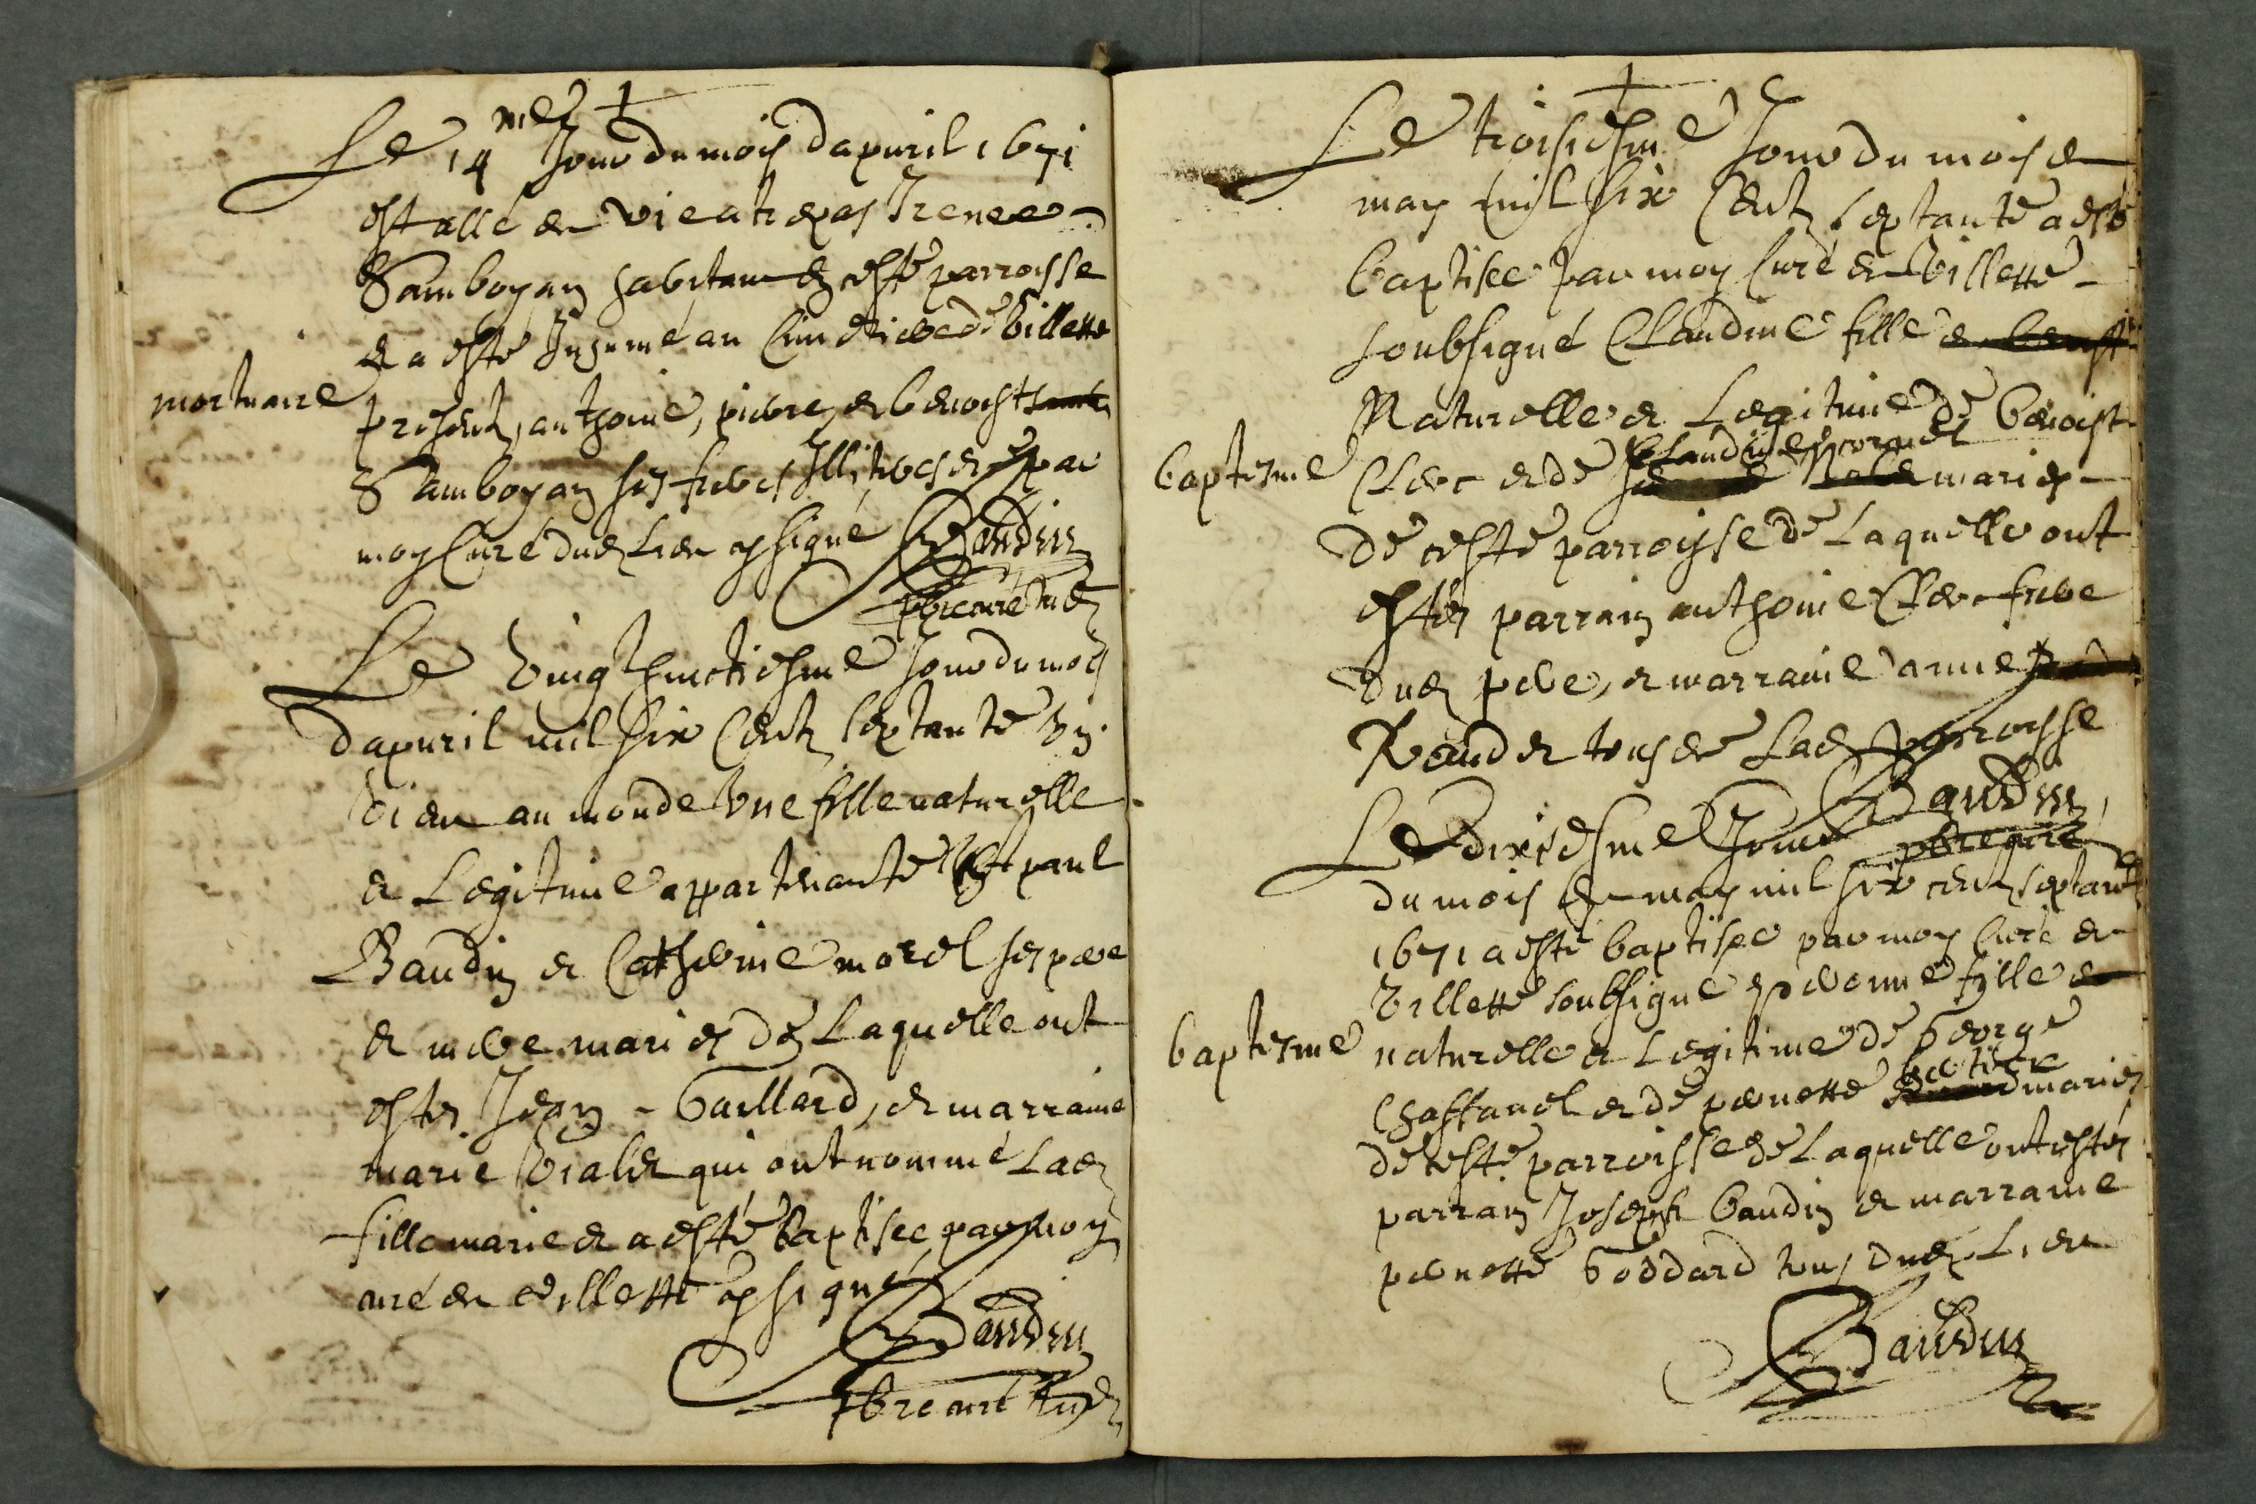 Le 14 me Jour du mois dapuril 1671
est allé de vie a trepas Irenee
Samboyan habitant de ceste parroysse
et a esté Inhumé au Cimetiere de Villette
mortuaire
presents, anthoine, pierre, et benoist
Samboyan ses freres Illitres et par
moy Curé dud lieu ay signé Baudin
pbre curé sud
Le vingt huictiesme Jour du moys
dapuril mil six Cents septante un
vient au monde une fille naturelle
et Legitime appartenante a paul
Baudin et Catherine morel ses pere
et mere maries de Laquelle ont
estes Jean Gaillard, et marraine
marie Vialet qui ont nommé Lad
fille marie et a esté baptisee par moy
curé de Villette ay signé
Baudin
pbre curé sud
Le troisiesme Jour du mois de
may mil six Cents septante a esté
baptisee par moy Curé de Villette
soubsigné Claudine fille de benoist
Naturelle et Legitime de benoist
baptesme
Clerc et de Claudine maries
de ceste parroysse de Laquelle ont
estés parrain anthoine Clerc frere
dud pere, et marraine anne
Renaud et tous de Lad parroysse
Baudin
pbre curé
Le dixiesme Jour
du mois de may mil six cents septante
1671 a esté baptisee par moy Curé de
Villette soubsigné pieronne fille de
baptesme
naturelle et Legitime de George
Chaffanel et de pernette maries
de ceste parroisse de Laquelle ont estés
parrain Joseph baudin et marraine
pernette Goddard tous dud Lieu
Baudin